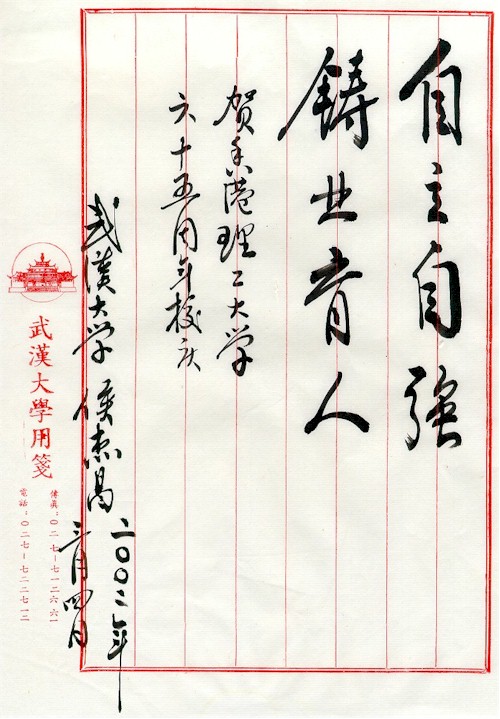 自主自强
铸业育人
贺香港理工大学
六十五周年校庆
武漢大学 侯杰昌
二〇〇二年
三月四日
武漢大學用箋
傳真：〇二七—七一二六六一
電話：〇二七—七二二七一二